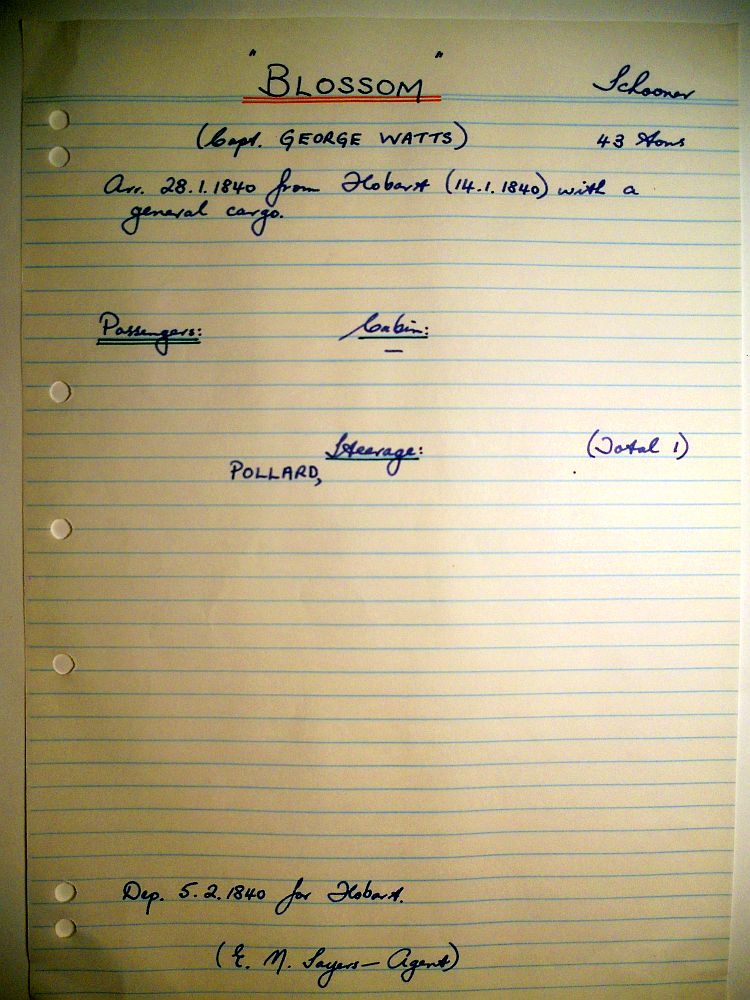 "BLOSSOM" Schooner
(Capt. GEORGE WATTS) 43 tons
Arr. 28.1.1840 from Hobart (14.1.1840) with a
general cargo.
Passengers: Cabin:
—
Steerage: (Total 1)
POLLARD,
Dep. 5.2.1840 for Hobart.
(E. M. Sayers — Agent)